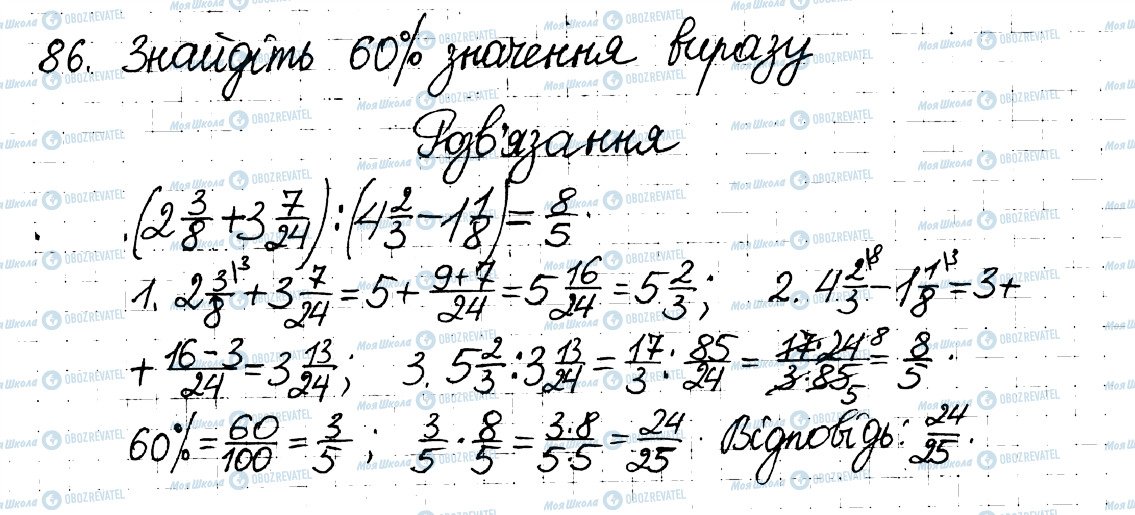 86. Знайдіть 60% значення виразу
Розв'язання
(2 3/8 + 3 7/24) : (4 2/3 - 1 1/8) = 8/5.
1. 2 3/8 |3 + 3 7/24 = 5 + (9+7)/24 = 5 16/24 = 5 2/3; 2. 4 2/3 |8 - 1 1/8 |3 = 3 +
+ (16-3)/24 = 3 13/24; 3. 5 2/3 : 3 13/24 = 17/3 : 85/24 = (17·24 8)/(3·85 5) = 8/5.
60% = 60/100 = 3/5; 3/5 · 8/5 = (3·8)/(5·5) = 24/25. Відповідь: 24/25.